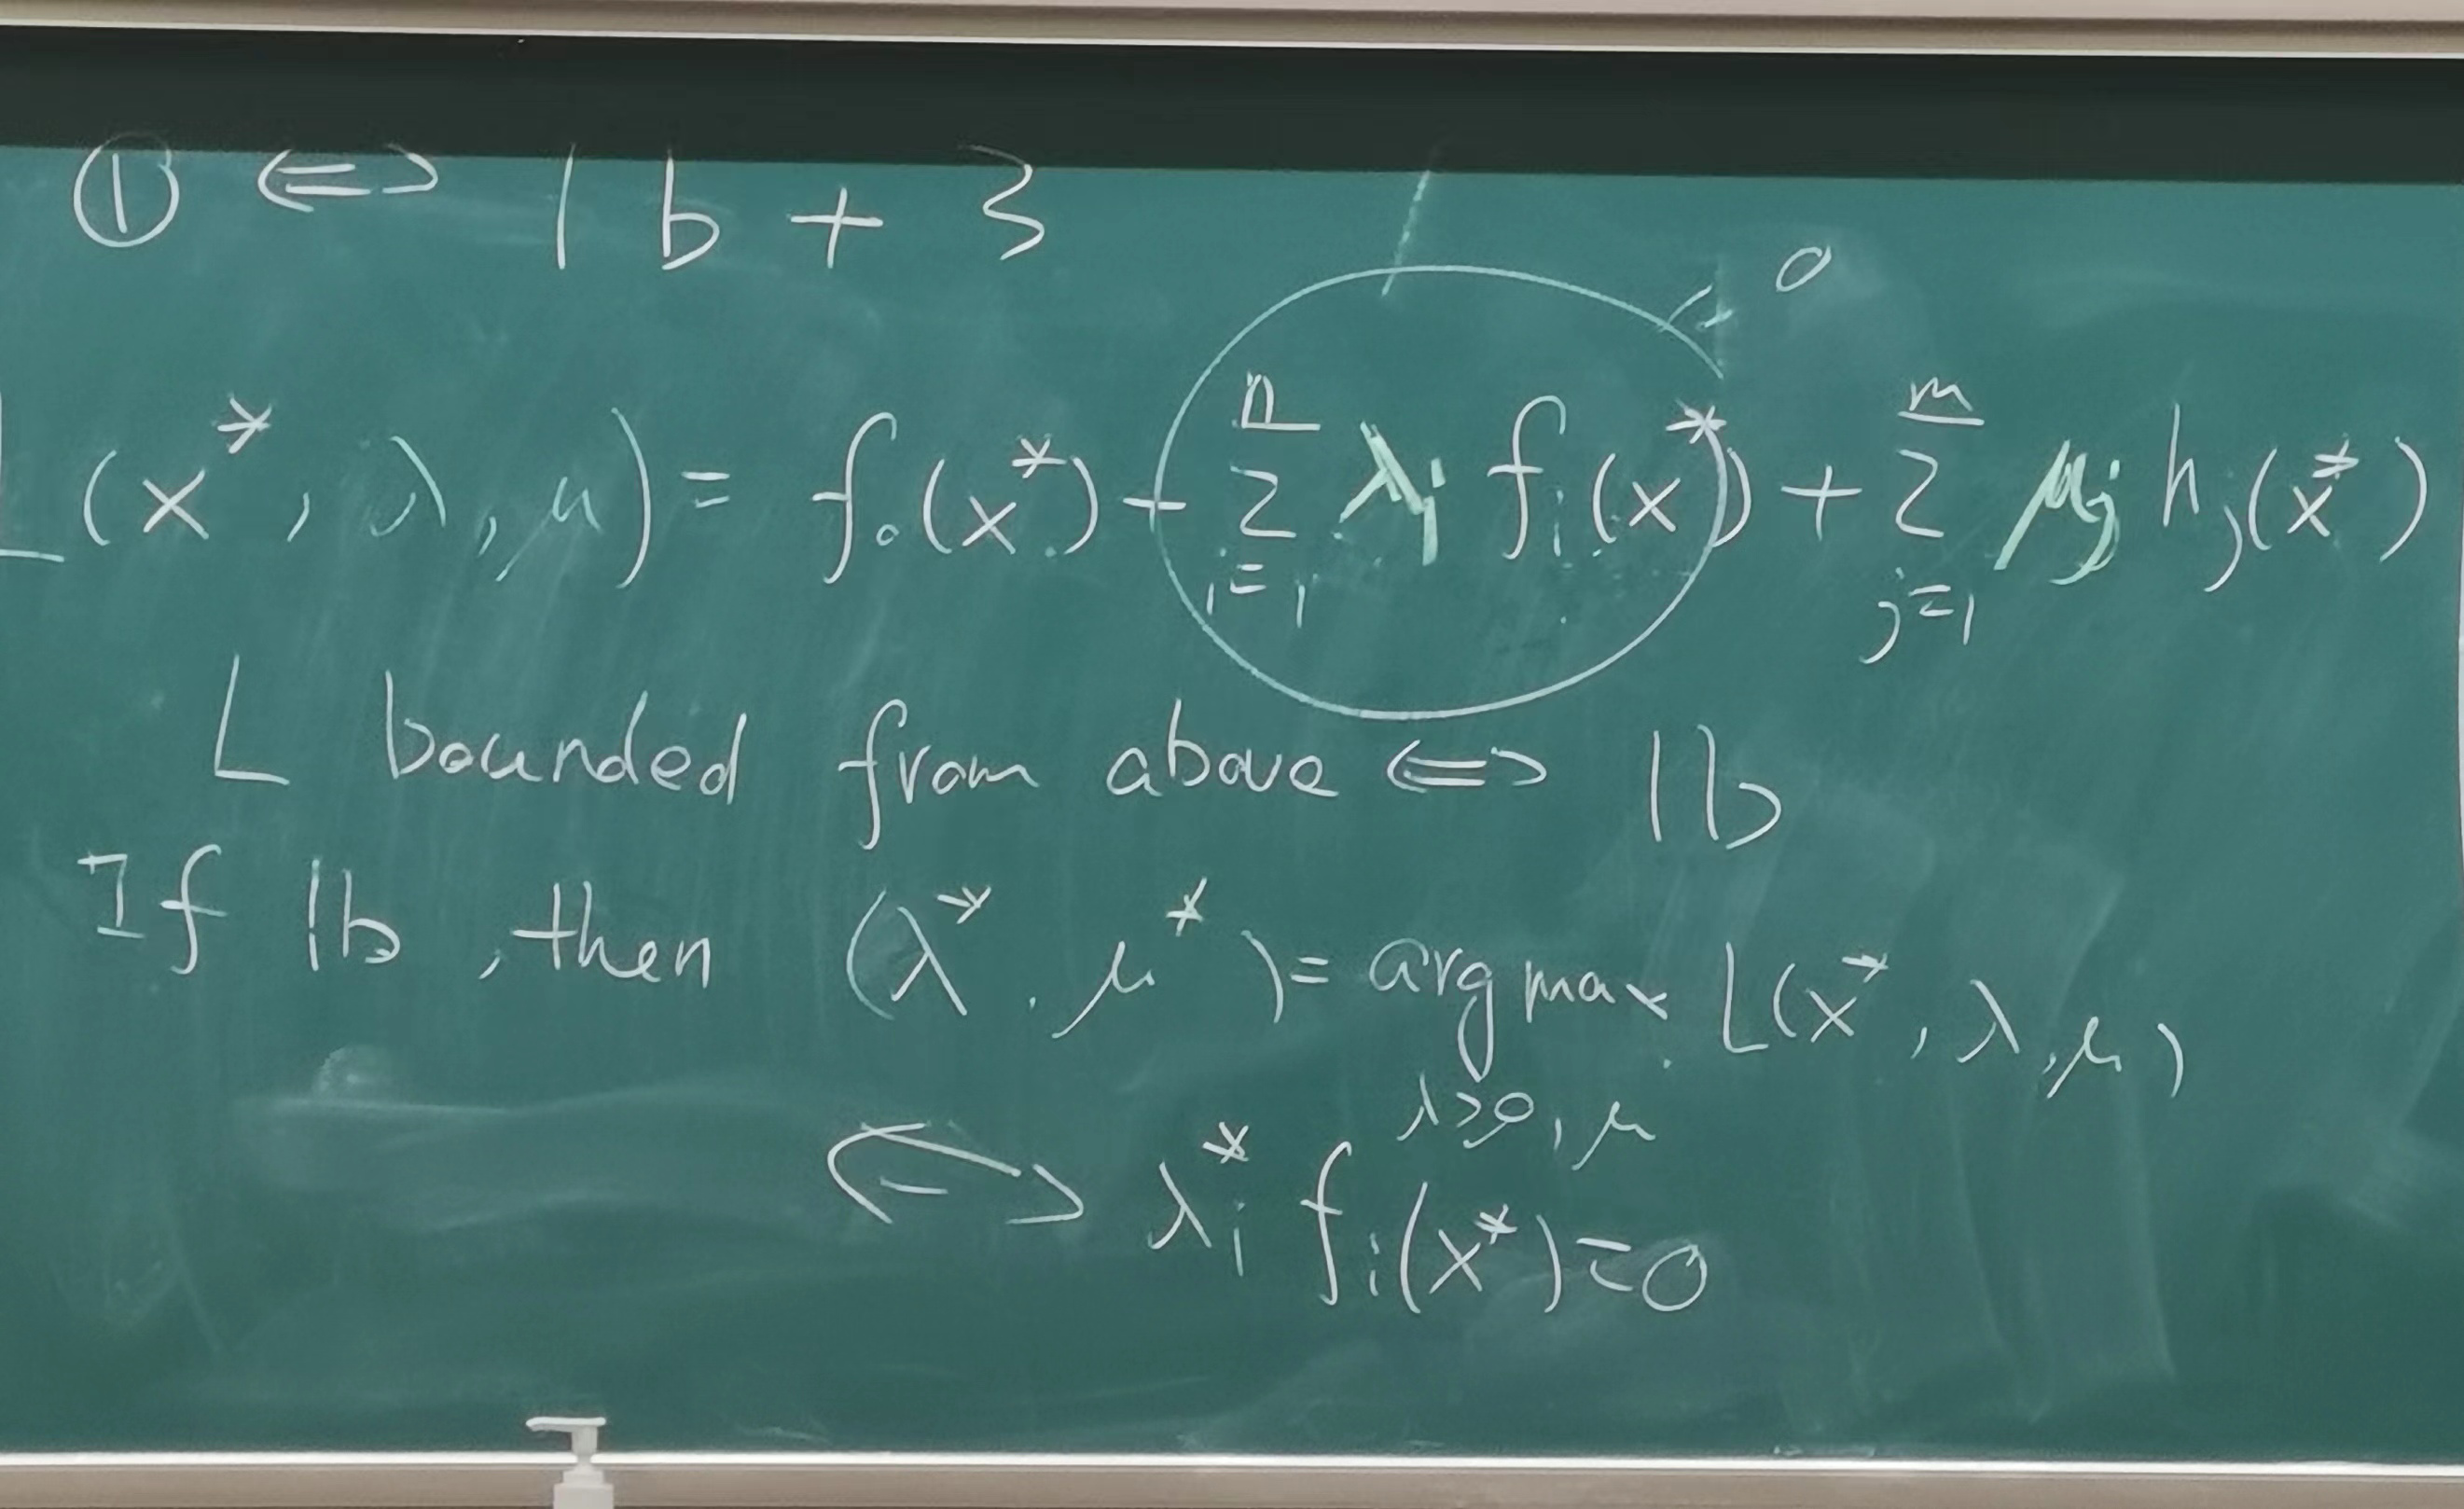 ① ⇔ 1b + 3
L(x*, λ, μ) = f₀(x*) + ∑ᵢ₌₁ⁿ λᵢ fᵢ(x*) + ∑ⱼ₌₁ᵐ μⱼ hⱼ(x*)
0
L bounded from above ⇔ 1b
If 1b, then (λ*, μ*) = argmax L(x*, λ, μ)
λ≥0, μ
⇔ λᵢ* fᵢ(x*) = 0